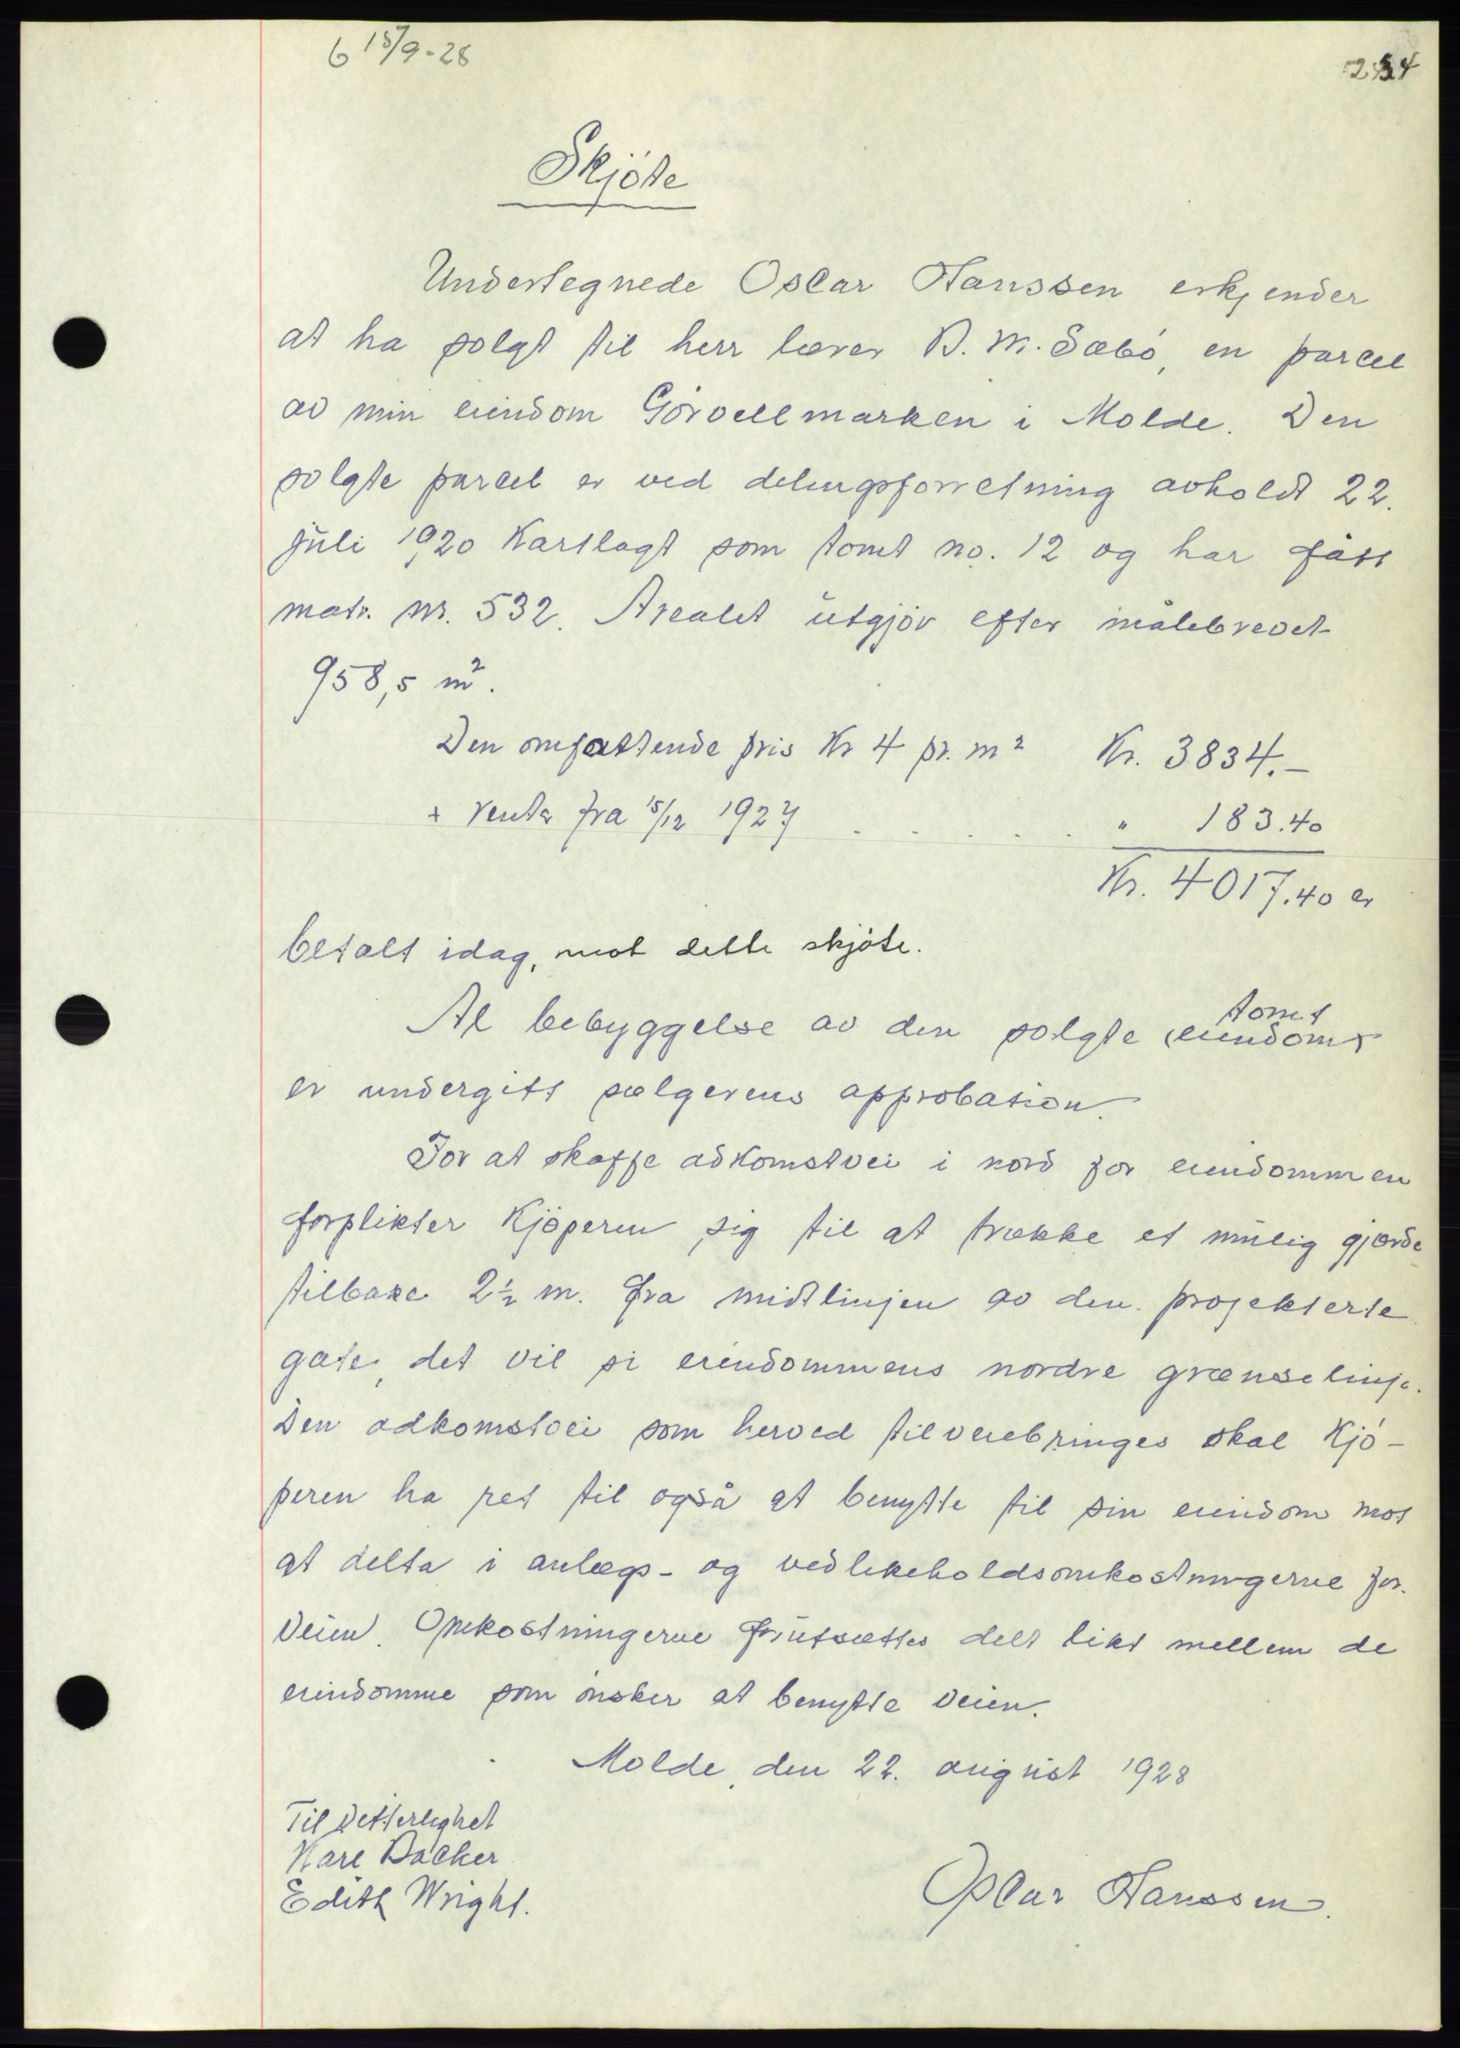 6 15/9-28
Skjöte
Undertegnede Oscar Hanssen erkjender
at ha solgt til herr lærer B. M. Sæbö, en parcel
av min eiendom Görvellmarken i Molde. Den
solgte parcel er ved delingsforretning avholdt 22.
juli 1920 kartlagt som tomt no. 12 og har fått
matr. nr. 532. Arealet utgjör efter målebrevet
958,5 m².
Den omfattende pris Kr 4 pr. m² Kr. 3834.—
+ renter fra 15/12 1927 . . . . . " 183.40
Kr. 4017.40 er
betalt idag, mot dette skjöte.
Al bebyggelse av den solgte (eiendom) tomt
er undergitt sælgerens approbation.
For at skaffe adkomstvei i nord for eiendommen
forplikter kjöperen sig til at trække et mulig gjærde
tilbake 2½ m. fra midtlinjen av den projekterte
gate, det vil si eiendommens nordre grænselinje.
Den adkomstvei som herved tilveiebringes skal kjö-
peren ha ret til også at benytte til sin eiendom mot
at delta i anlægs- og vedlikeholdsomkostningerne for
veien. Omkostningerne forutsættes delt likt mellem de
eiendomme som önsker at benytte veien.
Molde, den 22. august 1928
Til vitterlighet
Kare Backer
Edith Wright.
Oscar Hanssen.